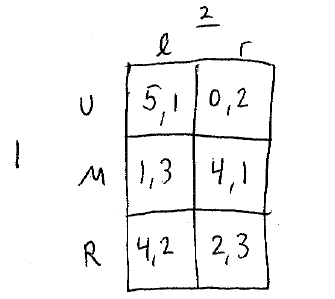 2
l r
U 5,1 0,2
1
M 1,3 4,1
R 4,2 2,3